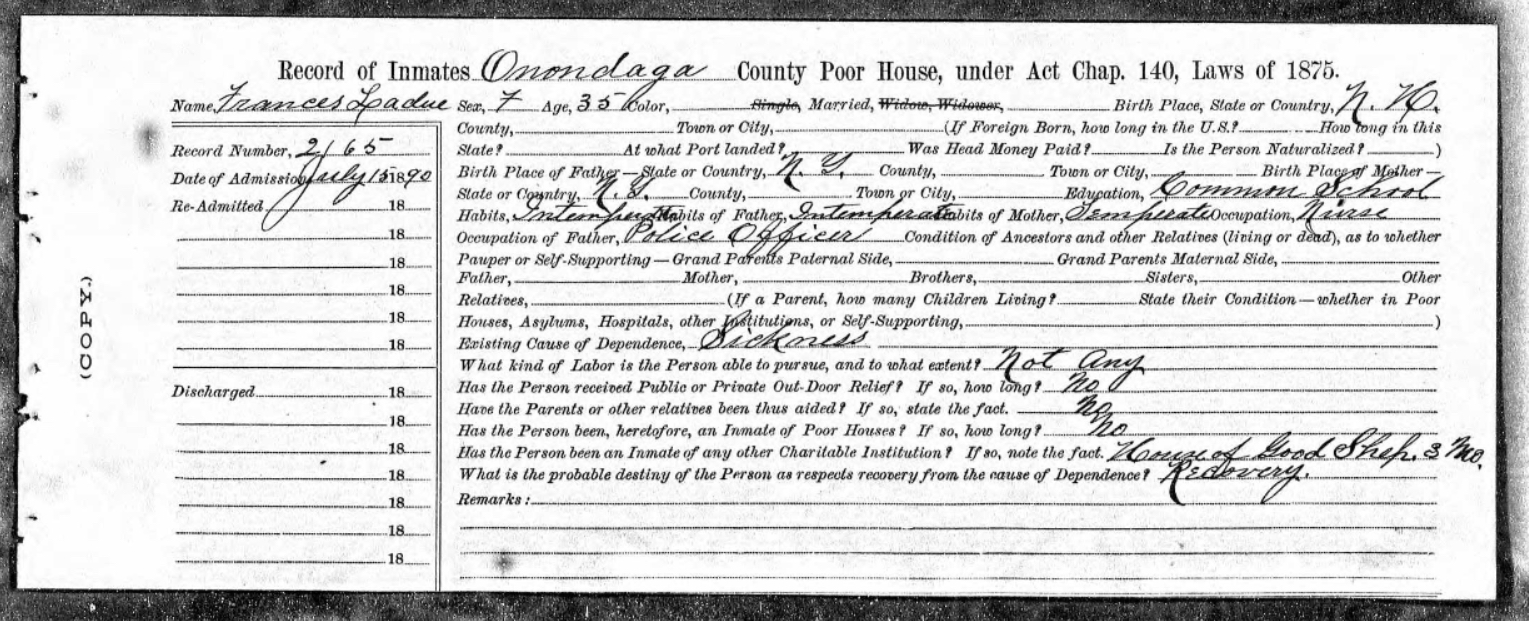 Record of Inmates Onondaga County Poor House, under Act Chap. 140, Laws of 1875.
Name, Frances Ladue Sex, F Age, 35 Color, Single, Married, Widow, Widower, Birth Place, State or Country, N. H.
County, Town or City, (If Foreign Born, how long in the U.S.? How long in this
Record Number, 2165
State? At what Port landed? Was Head Money Paid? Is the Person Naturalized? )
Date of Admission July 15 1890
Birth Place of Father—State or Country, N. Y. County, Town or City, Birth Place of Mother—
State or Country, County, Town or City, Education, Common School
Re-Admitted 18
Habits, Intemperate Habits of Father, Intemperate Habits of Mother, Temperate Occupation, Nurse
18
Occupation of Father, Police Officer Condition of Ancestors and other Relatives (living or dead), as to whether
18
Pauper or Self-Supporting—Grand Parents Paternal Side, Grand Parents Maternal Side,
Father, Mother, Brothers, Sisters, Other
18
Relatives, (If a Parent, how many Children Living? State their Condition—whether in Poor
18
Houses, Asylums, Hospitals, other Institutions, or Self-Supporting, )
18
Existing Cause of Dependence, Sickness
What kind of Labor is the Person able to pursue, and to what extent? Not Any
Discharged 18
Has the Person received Public or Private Out-Door Relief? If so, how long? No
Have the Parents or other relatives been thus aided? If so, state the fact. No
18
Has the Person been, heretofore, an Inmate of Poor Houses? If so, how long? No
18
Has the Person been an Inmate of any other Charitable Institution? If so, note the fact. House of Good Shep. 3 Mo.
18
What is the probable destiny of the Person as respects recovery from the cause of Dependence? Recovery.
18
Remarks:
18
18
18
(COPY.)